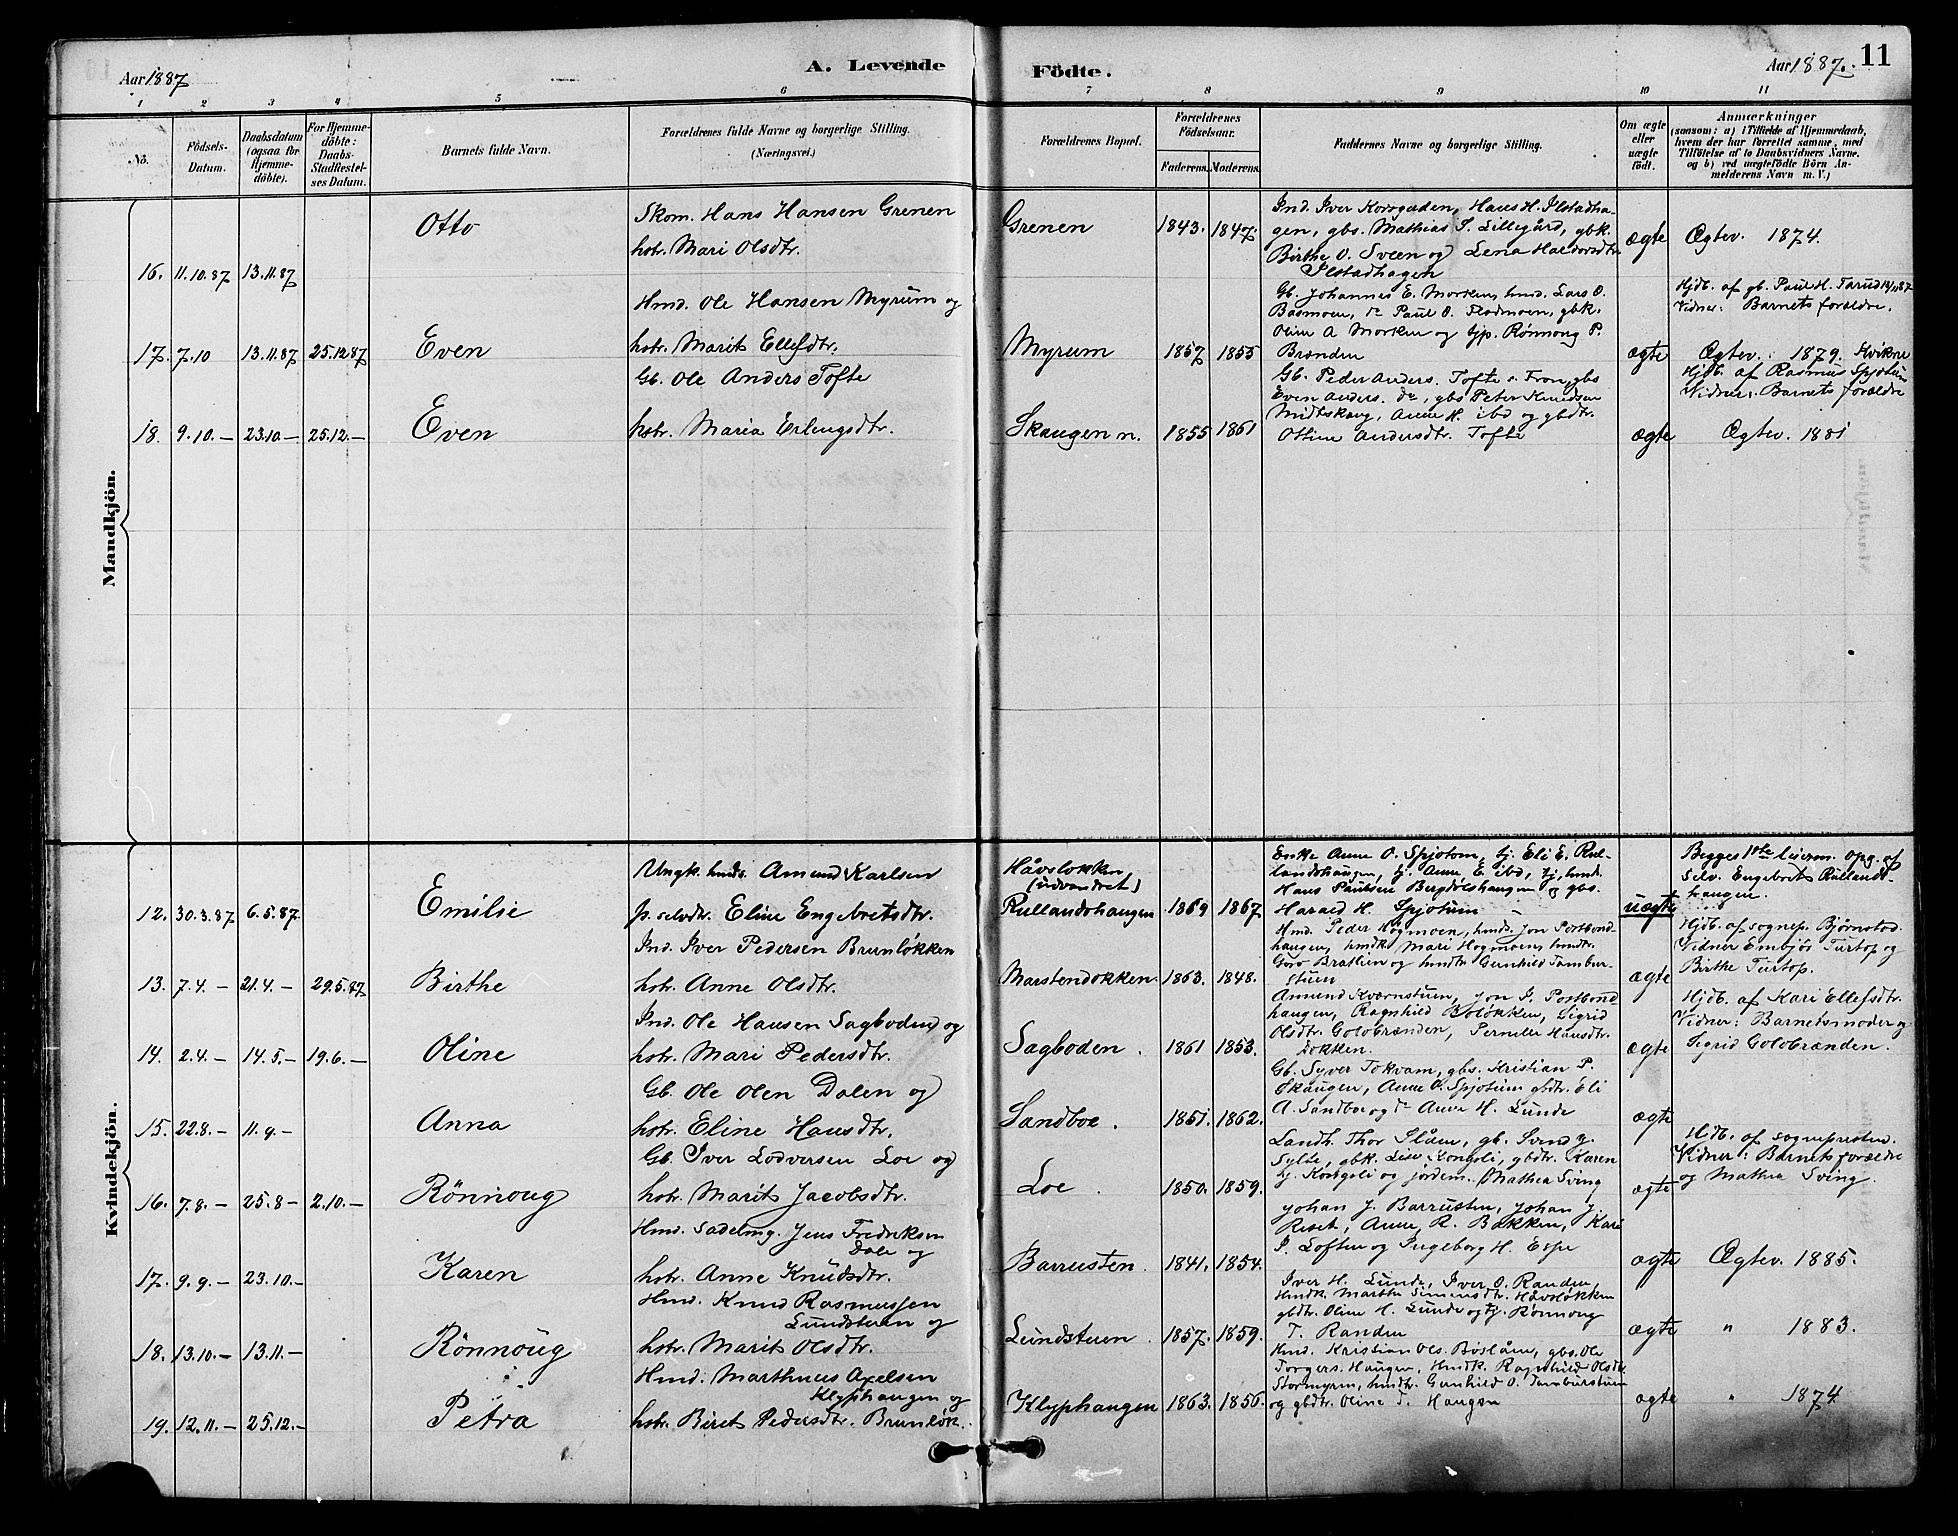 Aar 1887
A. Levende
Födte.
Aar 1887. 11
1 2 3 4 5 6 7 8 9 10 11
No.
Födsels-Datum.
Daabsdatum (ogsaa for Hjemme-döbte).
For Hjemme-döbte: Daabs-Stadfestel-ses Datum.
Barnets fulde Navn.
Forældrenes fulde Navne og borgerlige Stilling.
(Næringsvei.)
Forældrenes Bopæl.
Forældrenes Födselsaar.
Faderens. Moderens.
Faddernes Navne og borgerlige Stilling.
Om ægte eller uægte födt.
Anmærkninger
(saasom: a) i Tilfælde af Hjemmedaab, hvem der har forrettet samme, med Tilföielse af to Daabsvidners Navne, og b) ved uægtefödte Börn An-melderens Navn m. V.)
Mandkjön.
16. 11.10.87 13.11.87
Otto
Skom. Hans Hansen Grenen
hstr. Mari Olsdtr.
Grenen
1843. 1847.
Ind. Iver Korsgaden, Hans H. Ilstadha-
gen, gbs. Mathias S. Lillegård, gbk.
Birthe O. Sveen og Lena Haldorsdtr.
Ilstadhagen
ægte
Ægtev. 1874.
17. 7.10 13.11.87 25.12.87
Even
Hmd. Ole Hansen Myrum og
hstr. Marit Ellefsdtr.
Myrum
1857 1855
Gb. Johannes E. Morken, hmd. Lars O.
Basmoen, do Paul O. Flodmoen, gbk.
Oline A Morken og tjp. Rønnong P.
Brænden
ægte
Hjdb. af gb. Paul H. Tarud
Vidner: Barnets forældre.
Ægtev.: 1879.
18. 9.10.– 23.10– 25.12.–
Even
Gb. Ole Anders Tofte
hstr. Maria Erlingsdtr.
Skaugen n.
1855 1861
Gb. Peder Anders. Tofte s. Fron, gbs
Even Anders. do, gbs Peter Knudsen
Midtskaug, Anne H. ibd og gbdtr.
Ottine Andersdtr. Tofte
ægte
Hjdb. af Rasmus Spjotum
Vidner: Barnets forældre
Ægtev. 1881
Kvindekjön.
12. 30.3.87 6.5.87.
Emilie
Ungk. hmds. Amund Karlsen
p. selvdtr. Eline Engebretsdtr.
Håvsløkken
(udvandret)
Rullandshaugen
1869 1867
Enke Anne O. Spjotom, tj. Eli E. Rul-
landshaugen, tj. Anne E. ibd, tj. hmd.
Hans Paulsen Bergdølshaugen og gbs.
Harald H. Spjotum
uægte
Begges 1ste leierm. opg. af
Selv. Engebret Rullands-
haugen.
13. 7.4.– 21.4.– 29.5.87
Birthe
Ind. Iver Pedersen Brunløkken
hstr. Anne Olsdtr.
Marstendokken.
1863. 1848.
Hmd. Peder Hogmoen, hmds. Jon Postbond-
haugen, hmdk Mari Hogmoen, hmdtr.
Guro Bratlien og hmdtr Gunhild Tambur-
stuen
ægte
Hjdb. af sognep. Bjørnstad.
Vidner Embjør Turtop og
Birthe Turtop.
14. 2.4.– 14.5.– 19.6.–
Oline
Ind. Ole Hansen Sagboden og
hstr. Mari Pedersdtr.
Sagboden.
1861 1853.
Amund Kværnstuen, Jon I. Postbond
haugen, Ragnhild Boløkken, Sigrid
Olsdtr. Golobrænden, Pernille Hansdtr.
Dokken.
ægte
Hjdb. af Kari Ellefsdtr.
Vidner: Barnets moder og
Sigrid Golobrænden.
15. 22.8.– 11.9.–
Anna
Gb. Ole Olen Dalen og
hstr. Eline Hansdtr.
Sandboe.
1851. 1862.
Gb. Syver Tokvam, gbs. Kristian P.
Skaugen, Anne O. Spjotum gbdtr. Eli
A. Sandboe og do Anne H. Lunde
ægte
16. 7.8.– 25.8– 2.10.–
Rönnoug
Gb. Iver Lodversen Loe og
hstr. Marit Jacobsdtr.
Loe.
1850. 1859.
Landh. Thor Slåen, gb. Svend J.
Sylte, gbk. Lise Kongsli, gbdtr. Karen
H. Kongsli og jordem. Mathea Sving
ægte
Hjdb. af sognepresten.
Vidner: Barnets forældre
og Mathea Sving.
17. 9.9.– 23.10.–
Karen
Hmd. Sadelmg. Jens Fredriksen
Dale og
hstr. Anne Knudsdtr.
Barrusten.
1841. 1854.
Johan J. Barrusten, Johan J.
Reset, Anne R. Bakken, Kari
I. Loften og Ingeborg H. Espe
ægte
Ægtev. 1885.
18. 13.10.– 13.11.–
Rönnoug
Hmd. Knud Rasmussen
Lundstuen og
hstr. Marit Olsdtr.
Lundstuen.
1857. 1859.
Iver H. Lunde, Iver O. Randen,
hmdk. Marthe Simensdtr. Håvsløkken
gbdtr. Oline H. Lunde og tj. Rønnoug
T. Randen
ægte
" 1883.
19. 12.11.– 25.12.–
Petra
Hmd. Marthinus Axelsen
Klyphaugen og
hstr. Biret Pedersdtr. Brunløk.
Klyphaugen
1863. 1856.
Hmd. Kristian Ols. Böslåen, gbs. Ole
Torgers. Haugen, hmdk. Ragnhild Olsdtr
Stormyren, hmdtr. Gunhild O. Tamburstuen
og gbdtr. Oline T. Haugen
ægte
" 1874.